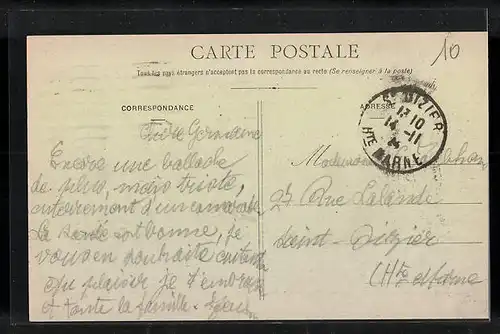 10
CARTE POSTALE
Tous les pays étrangers n'acceptent pas la correspondance au recto (Se renseigner à la poste)
CORRESPONDANCE
ADRESSE
ST DIZIER
17 10
14 - 11
HTE MARNE
Encore une
de plus, moins triste,
enterrement d'un camarade
La santé est bonne, je
vous en souhaite autant
Au plaisir je t'embrasse
et toute la famille.
27 Rue Lalande
Saint-Dizier
(Hte Marne